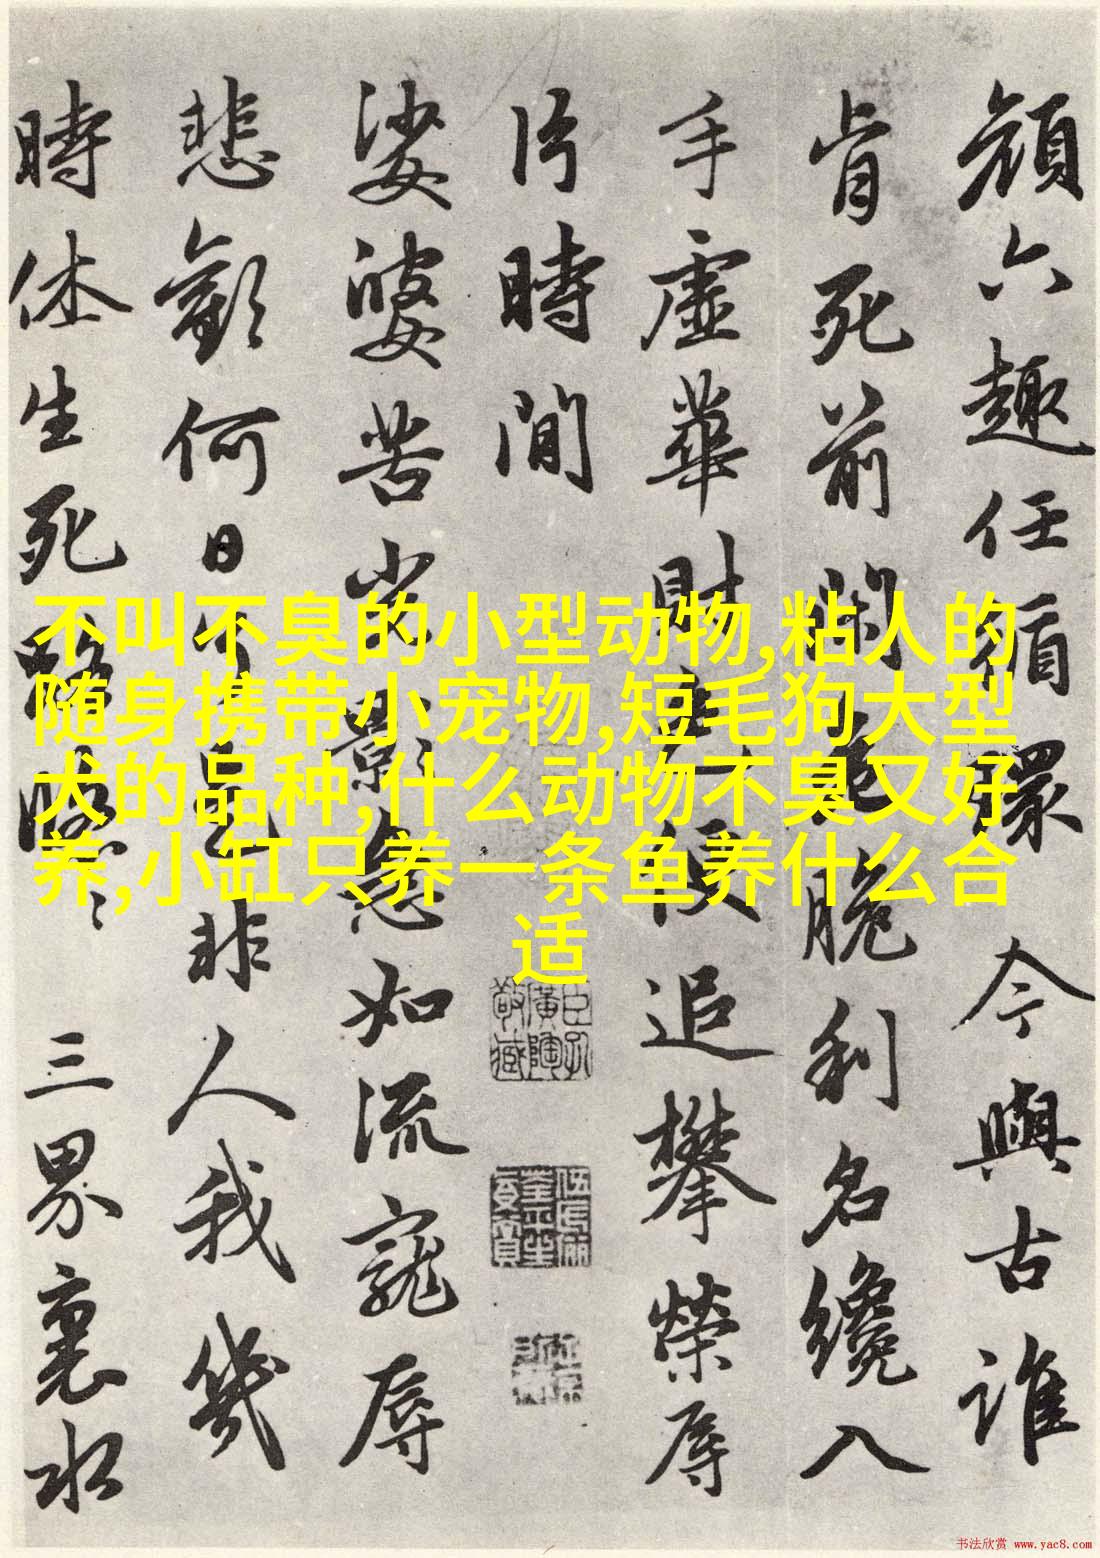 顔六趣任循環今與古誰
肯死前閑危脆利名纔入
手虛華財色便追攀榮辱
片時間
娑婆苦光影急如流寵辱
悲歡何日了是非人我幾
時休生死路悠悠三界裏水
不叫不臭的小型动物,粘人的
随身携带小宠物,短毛狗大型
犬的品种,什么动物不臭又好
养,小缸只养一条鱼养什么合
适
书法欣赏 www.yac8.com